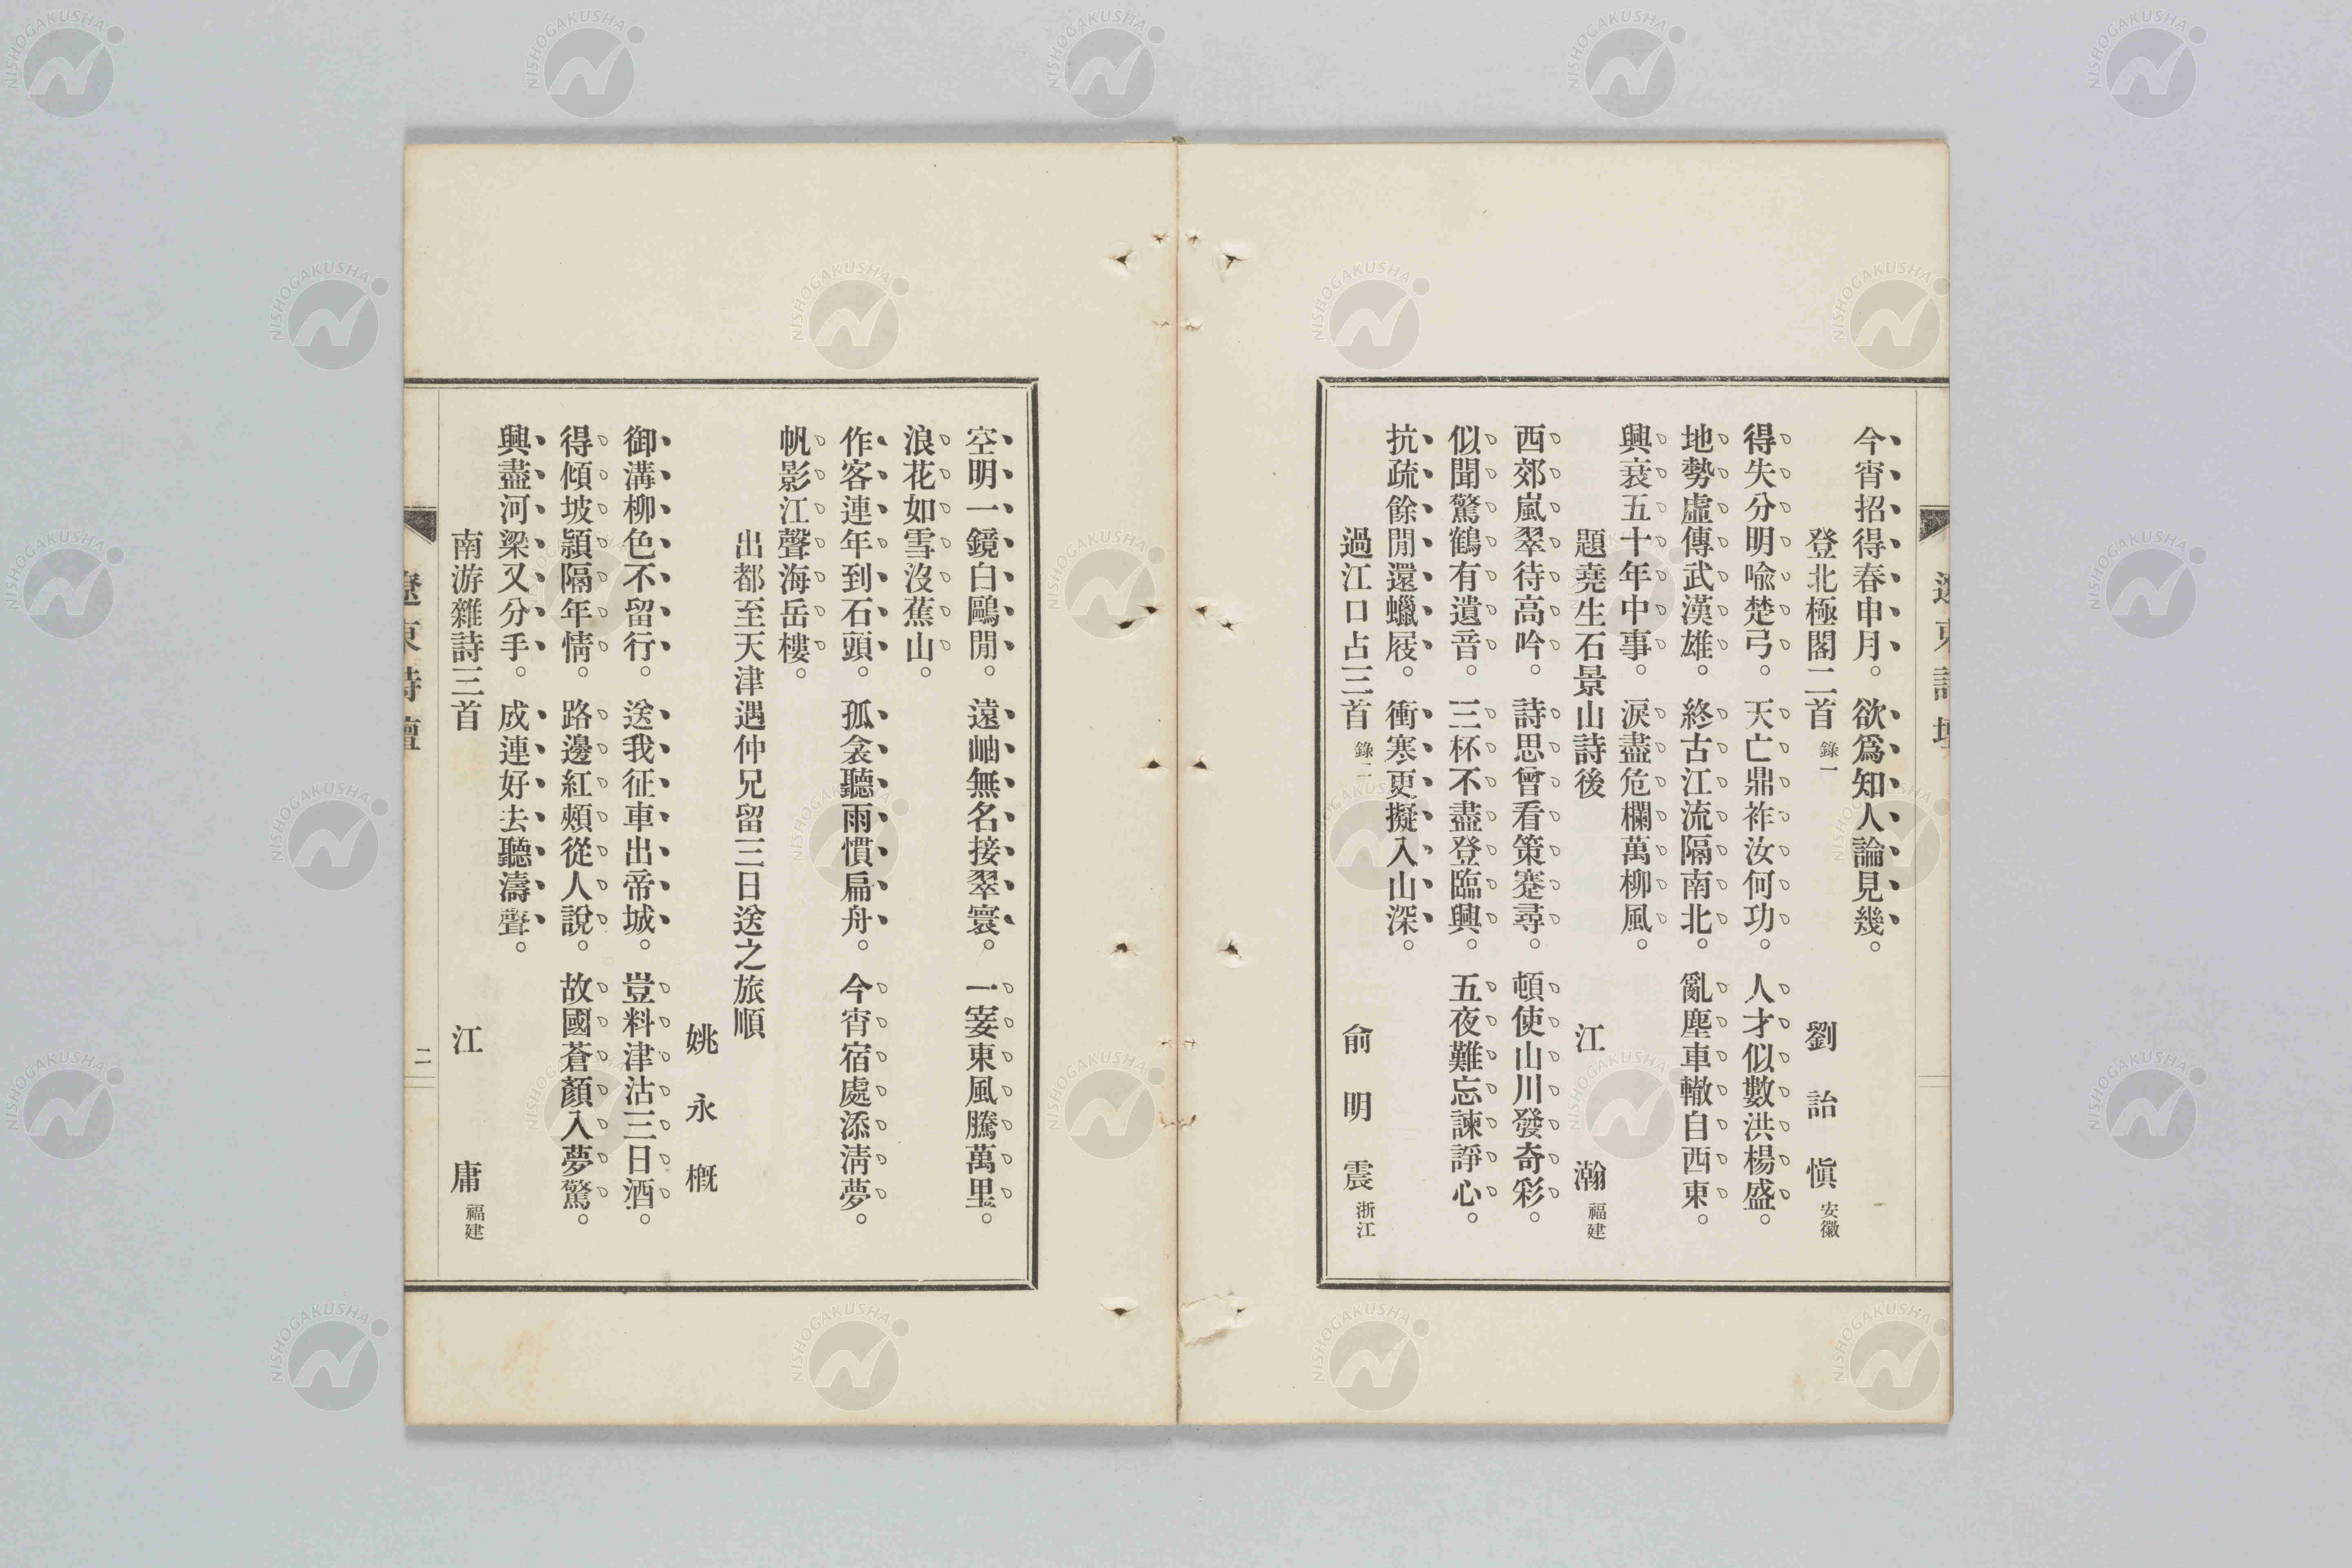 今宵招得春申月。欲爲知人論見幾。
登北極閣二首 錄一 劉詒愼 安徽
得失分明喩楚弓。天亡鼎祚汝何功。人才似數洪楊盛。
地勢虛傳武漢雄。終古江流隔南北。亂塵車轍自西東。
興衰五十年中事。淚盡危欄萬柳風。
題堯生石景山詩後 江瀚 福建
西郊嵐翠待高吟。詩思曾看策蹇尋。頓使山川發奇彩。
似聞驚鶴有遺音。三杯不盡登臨興。五夜難忘諫諍心。
抗疏餘閒還蠟屐。衝寒更擬入山深。
過江口占三首 錄二 俞明震 浙江
遼東詩壇
空明一鏡白鷗閒。遠岫無名接翠寰。一霎東風騰萬里。
浪花如雪沒蕉山。
作客連年到石頭。孤衾聽雨慣扁舟。今宵宿處添淸夢。
帆影江聲海岳樓。
出都至天津遇仲兄留三日送之旅順
姚永概
御溝柳色不留行。送我征車出帝城。豈料津沽三日酒。
得傾坡潁隔年情。路邊紅頰從人說。故國蒼顏入夢驚。
興盡河梁又分手。成連好去聽濤聲。
南游雜詩三首 江庸 福建
遼東詩壇
二
NISHOGAKUSHA